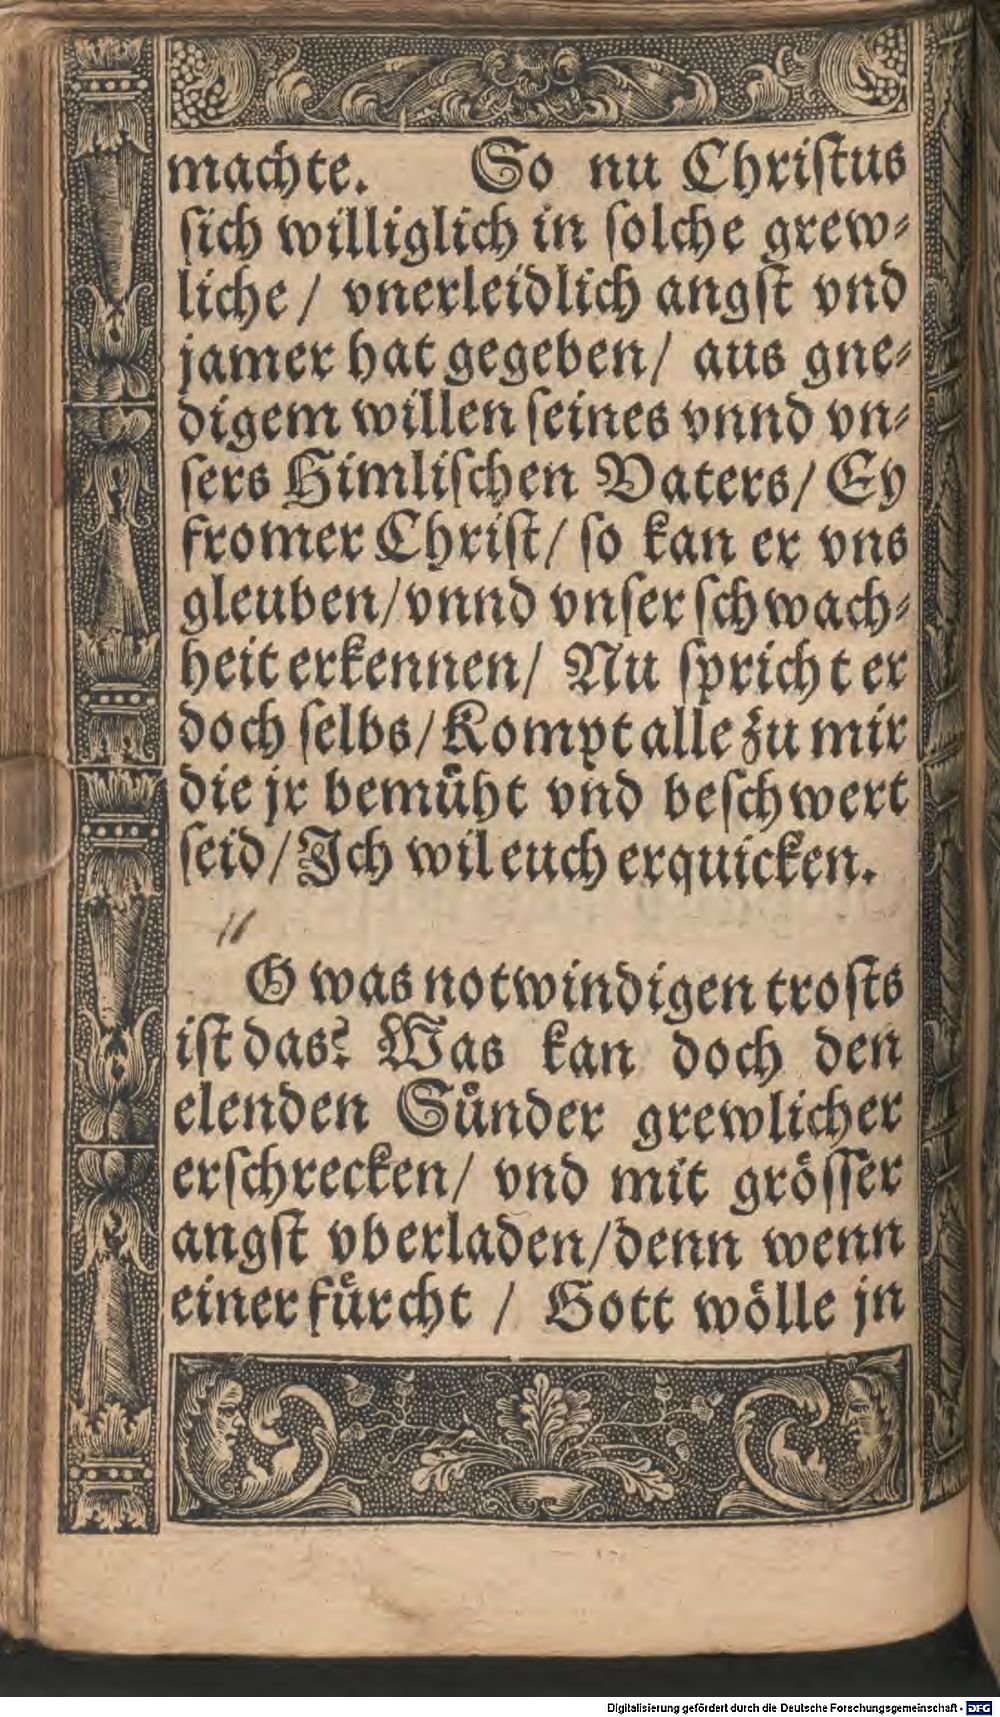 machte. So nu Chriſtus
ſich williglich in ſolche grew⸗
liche / vnerleidlich angſt vnd
jamer hat gegeben / aus gne⸗
digem willen ſeines vnnd vn⸗
ſers Himliſchen Vaters / Ey
fromer Chriſt / ſo kan er vns
gleuben / vnnd vnſer ſchwach⸗
heit erkennen / Nu ſpricht er
doch ſelbs / Kompt alle zu mir
die jr bemuͤht vnd beſchwert
ſeid / Ich wil euch erquicken.
O was notwindigen troſts
iſt das? Was kan doch den
elenden Suͤnder grewlicher
erſchrecken / vnd mit groͤſſer
angſt vberladen / denn wenn
einer fuͤrcht / Gott woͤlle jn
Digitalisierung gefördert durch die Deutsche Forschungsgemeinschaft - DFG